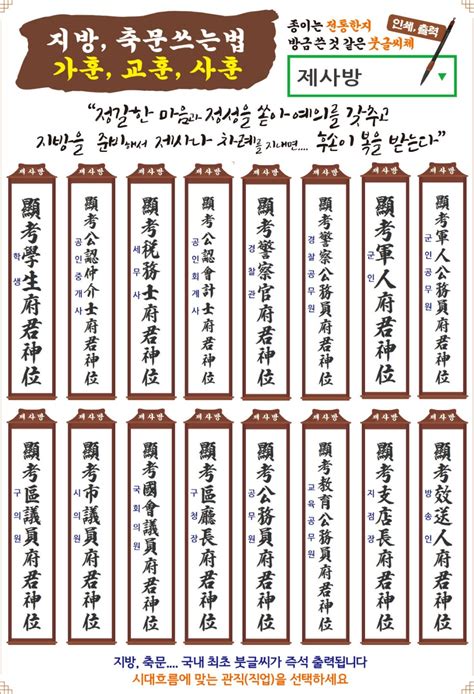 지방, 축문쓰는법
가훈, 교훈, 사훈
종이는 전통한지
방금 쓴 것 같은 붓글씨체
인쇄, 출력
제사방
“정갈한 마음과 정성을 쏟아 예의를 갖추고
지방을 준비해서 제사나 차례를 지내면.... 후손이 복을 받는다”
제사방
顯考學生府君神位
학생
제사방
顯考公認仲介士府君神位
공인중개사
제사방
顯考稅務士府君神位
세무사
제사방
顯考公認會計士府君神位
공인회계사
제사방
顯考警察官府君神位
경찰관
제사방
顯考警察公務員府君神位
경찰공무원
제사방
顯考軍人府君神位
군인
제사방
顯考軍人公務員府君神位
군인공무원
제사방
顯考區議員府君神位
구의원
제사방
顯考市議員府君神位
시의원
제사방
顯考國會議員府君神位
국회의원
제사방
顯考區廳長府君神位
구청장
제사방
顯考公務員府君神位
공무원
제사방
顯考敎育公務員府君神位
교육공무원
제사방
顯考支店長府君神位
지점장
제사방
顯考放送人府君神位
방송인
지방, 축문.... 국내 최초 붓글씨가 즉석 출력됩니다
시대흐름에 맞는 관직(직업)을 선택하세요